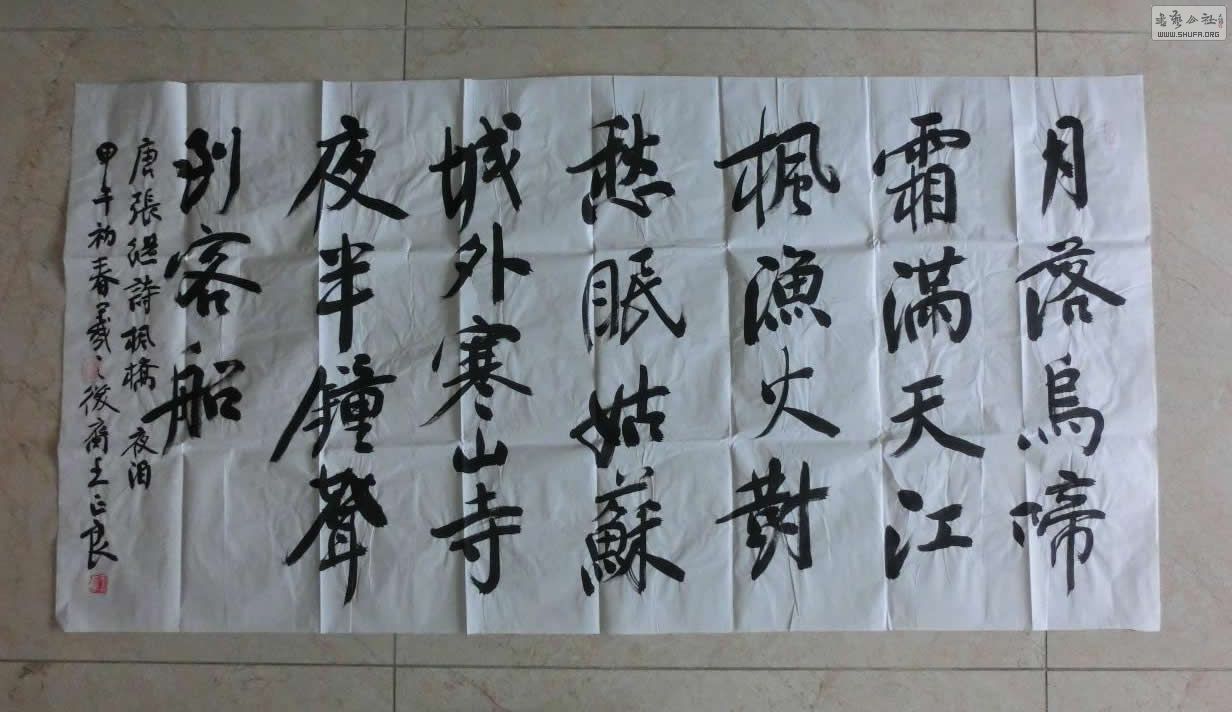 月落烏啼
霜滿天江
楓漁火對
愁眠姑蘇
城外寒山寺
夜半鐘聲
到客船
唐張継詩楓橋夜泊
甲午初春羲之後裔王正良
書藝公社
WWW.SHUFA.ORG